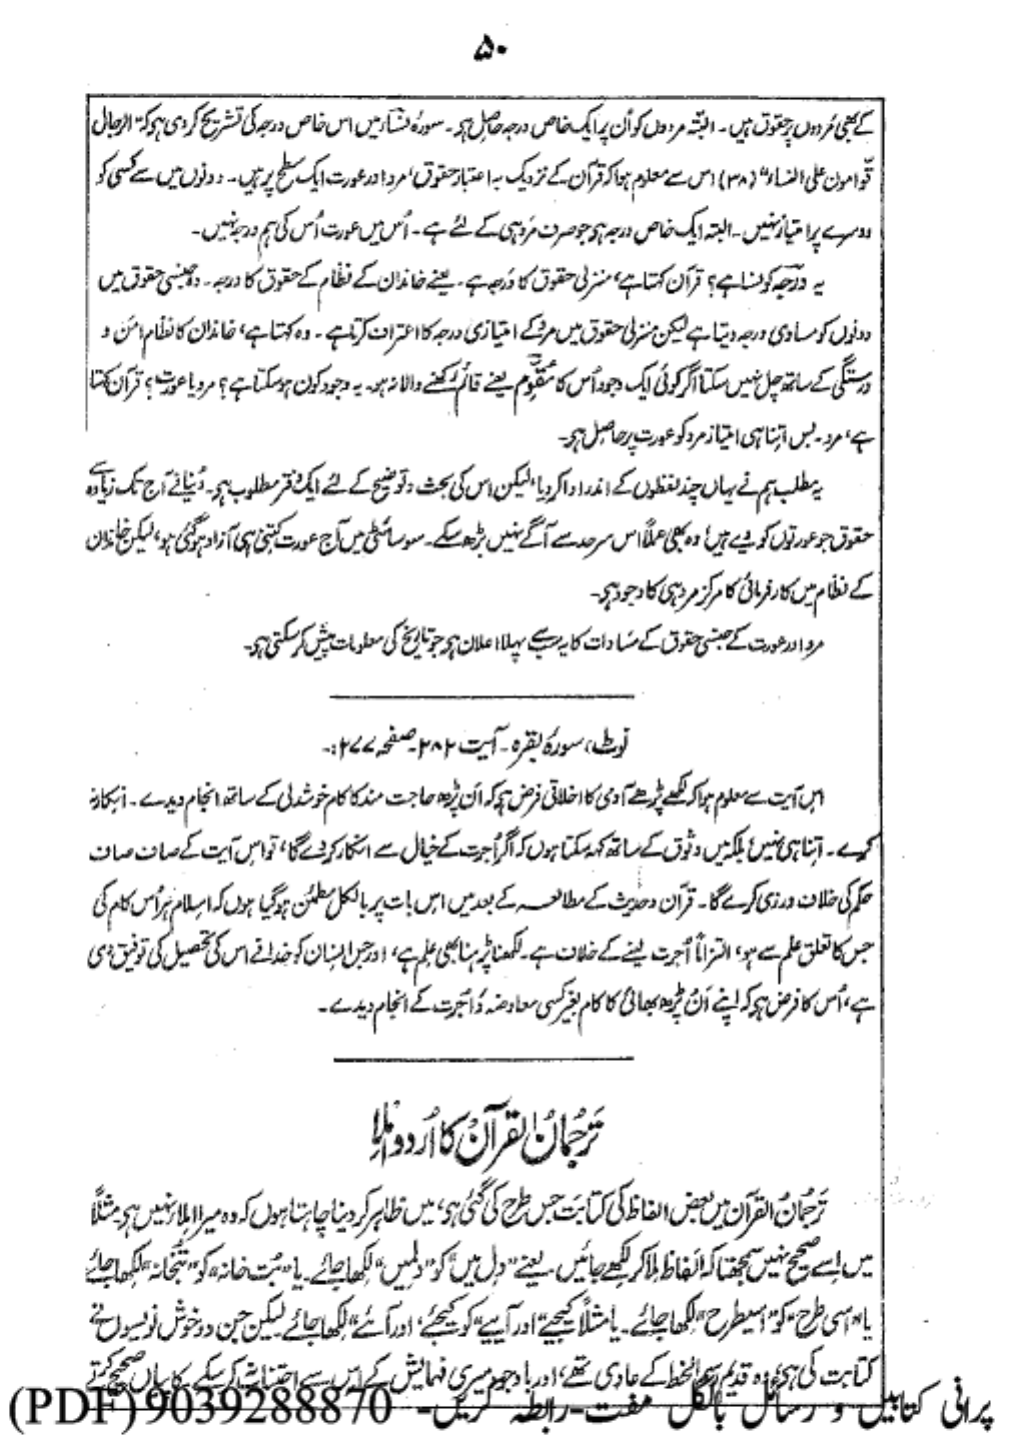 ۵۰
کے بھی مردوں پر حقوق ہیں۔ البتہ مردوں کو اُن پر ایک خاص درجہ حاصل ہی۔ سورۂ نساء میں اس خاص درجہ کی تشریح کردی ہی کہ "الرجال
قوّامون علی النساء" (۳۸) اس سے معلوم ہوا کہ قرآن کے نزدیک بہ اعتبار حقوق، مرد اور عورت ایک سطح پر ہیں۔ دونوں میں سے کسی کو
دوسرے پر امتیاز نہیں۔ البتہ ایک خاص درجہ ہی جو صرف مرد ہی کے لئے ہے۔ اُس میں عورت اُس کی ہم درجہ نہیں۔
یہ درجہ کونسا ہے؟ قرآن کہتا ہے، منزلی حقوق کا درجہ ہے۔ یعنے خاندان کے نظام کے حقوق کا درجہ۔ وہ جنسی حقوق میں
دونوں کو مساوی درجہ دیتا ہے لیکن منزلی حقوق میں مرد کے امتیازی درجہ کا اعتراف کرتا ہے۔ وہ کہتا ہے، خاندان کا نظام امن و
درستگی کے ساتھ چل نہیں سکتا اگر کوئی ایک وجود اُس کا مُقَوِّم یعنے قائم رکھنے والا نہ ہو۔ یہ وجود کون ہوسکتا ہے؟ مرد یا عورت؟ قرآن کہتا
ہے، مرد۔ بس اتنا ہی امتیاز مرد کو عورت پر حاصل ہی۔
یہ مطلب ہم نے یہاں چند لفظوں کے اندر ادا کردیا، لیکن اس کی بحث و توضیح کے لئے ایک دفتر مطلوب ہی۔ دُنیا نے آج تک زیادہ سے زیادہ
حقوق جو عورتوں کو دیے ہیں، وہ بھی عملاً اس سرحد سے آگے نہیں بڑھ سکے۔ سوسائٹی میں آج عورت کتنی ہی آزاد ہوگئی ہو، لیکن خاندان
کے نظام میں کارفرمائی کا مرکز مرد ہی کا وجود ہی۔
مرد اور عورت کے جنسی حقوق کے مساوات کا یہ سب سے پہلا اعلان ہی جو تاریخ کی معلومات پیش کرسکتی ہی۔
نوٹ، سورۂ بقرہ۔ آیت ۲۸۲۔ صفحہ ۲۷۷:۔
اِس آیت سے معلوم ہوا کہ لکھے پڑھے آدمی کا اخلاقی فرض ہی کہ اَن پڑھ حاجت مند کا کام خوشدلی کے ساتھ انجام دیدے۔ انکار نہ
کرے۔ اتنا ہی نہیں، بلکہ میں وثوق کے ساتھ کہہ سکتا ہوں کہ اگر اُجرت کے خیال سے انکار کردے گا، تو اِس آیت کے صاف صاف
حکم کی خلاف ورزی کرے گا۔ قرآن و حدیث کے مطالعہ کے بعد میں اِس بات پر بالکل مطمئن ہوگیا ہوں کہ اسلام ہر اُس کام کی
جس کا تعلق علم سے ہو، التزاماً اُجرت لینے کے خلاف ہے۔ لکھنا پڑہنا بھی علم ہے، اور جس انسان کو خدا نے اس کی تحصیل کی توفیق دی
ہے، اُس کا فرض ہی کہ اپنے اَن پڑھ بھائی کا کام بغیر کسی معاوضہ و اُجرت کے انجام دیدے۔
تَرجُمانُ القرآن کا اُردو اِملا
تَرجُمانُ القرآن میں بعض الفاظ کی کتابت جس طرح کی گئی ہی، میں ظاہر کردینا چاہتا ہوں کہ وہ میرا املا نہیں ہی۔ مثلاً
میں اِسے صحیح نہیں سمجھتا کہ الفاظ مِلا کر لکھے جائیں۔ یعنے "دل میں" کو "دلمیں" لکھا جائے۔ یا "بُت خانہ" کو "بُتخانہ" لکھا جائے
یا "اسی طرح" کو "اسیطرح" لکھا جائے۔ یا مثلاً کیجیے اور آیئے" کو کیجئے، اور آئے" لکھا جائے لیکن جن دو خوش نویسوں نے
کتابت کی ہی، وہ قدیم رسم الخط کے عادی تھے، اور باوجود میری فہمایش کے اِس سے اجتناب نہ کرسکے۔ کاپیاں صحیح کرتے
پرانی کتابیں و رسائل بالکل مفت۔رابطہ کریں۔ 9039288870 (PDF)